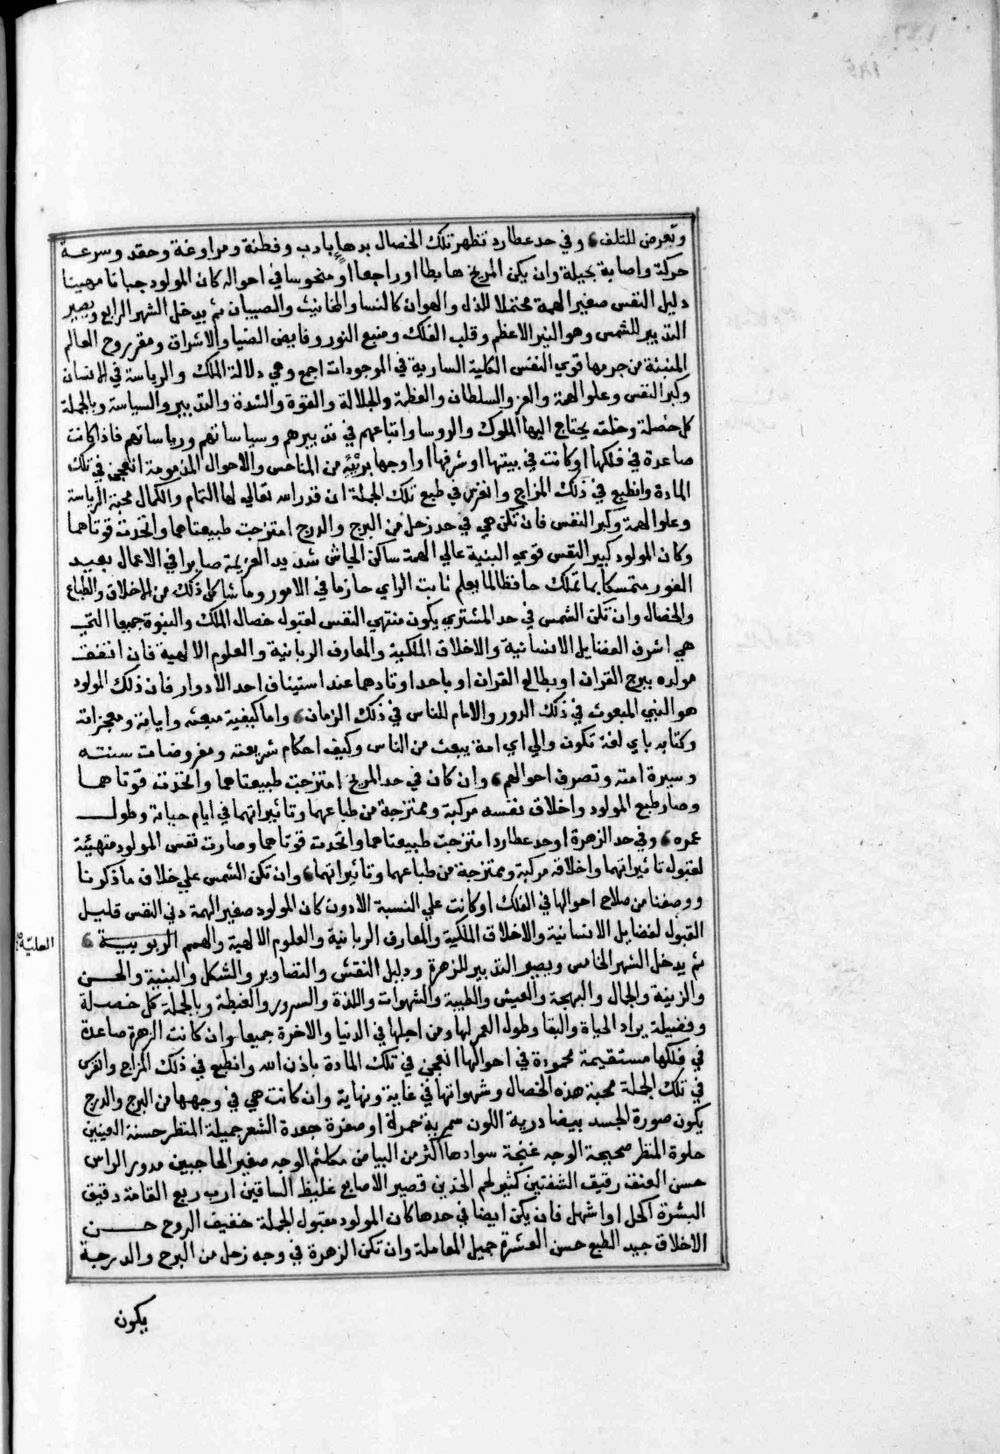 وتعرض للتلف وفي حد عطارد تظهر تلك الخصال بدهاء بادب وفطنة ومراوغة وحقد وسرعة
حركة واصابة بحيلة وان يكن المريخ هابطا او راجعا او منحوسا في احواله كان المولود جبانا مهينا
ذليل النفس صغير الهمة محتملا للذل والهوان كالنسا والمخانيث والصبيان ثم يدخل الشهر الرابع ويصير
التدبير للشمس وهو النير الاعظم وقلب الفلك ومنبع النور وفايض الضيا والاشراق ومقر روح العالم
المنبثة من جرمها قوي النفس الكلية السارية في الموجودات اجمع وهي دلالة الملك والرياسة في الانسان
وكبر النفس وعلو الهمة والعز والسلطان والعظمة والجلالة والقوة والشدة والتدبير والسياسة وبالجملة
كل خصلة وخلقه يحتاج اليها الملوك والروسا واتباعهم في تدبيرهم وسياساتهم ورياساتهم فاذا كانت
صاعدة في فلكها او كانت في بيتها او شرفها او اوجها بريئة من المناحس والاحوال المذمومة انعجن في تلك
المادة وانطبع في ذلك المزاج وانغرس في طبع تلك الجملة ان قدر الله تعالي لها التمام والكمال محبة الرياسة
وعلو الهمة وكبر النفس فان تكن هي في حد زحل من البرج والدرج امتزجت طبيعتاهما واتحدت قوتاهما
وكان المولود كبير النفس قوي البنية عالي الهمة ساكن الجاش شديد العزيمة صابرا في الاعمال بعيد
الغور متمسكا بما تملك حافظا لما يعلم ثابت الراي حازما في الامور وما شاكل ذلك من الاخلاق والطباع
والخصال وان تكن الشمس في حد المشتري يكون منتهي النفس لقبول خصال الملك والنبوة جميعا التي
هي اشرف الفضايل الانسانية والاخلاق الملكية والمعارف الربانية والعلوم الالهية فان اتفقت
مولده ببرج القران او بطالع القران او باحد اوتادهما عند استيناف احد الادوار فان ذلك المولود
هو النبي المبعوث في ذلك الدور والامام للناس في ذلك الزمان واما كيفية مبعثه واياته ومعجزاته
وكتابه باي لغة تكون والي اي امة يبعث من الناس وكيف احكام شريعته ومفروضات سنته
وسيرة امته وتصرف احوالهم وان كان في حد المريخ امتزجت طبيعتاهما واتحدت قوتاهما
وصار طبع المولود واخلاق نفسه مركبة وممتزجة من طباعهما وتاثيراتهما في ايام حياته وطول
عمره وفي حد الزهرة او حد عطارد امتزجت طبيعتاهما واتحدت قوتاهما وصارت نفس المولود متهيئة
لقبول تاثيراتهما واخلاقه مركبة وممتزجة من طباعهما وتاثيراتهما وان تكن الشمس علي خلاف ما ذكرنا
ووصفنا من صلاح احوالها في الفلك او كانت علي النسبة الادون كان المولود صغير الهمة دني النفس قليل
القبول لفضايل الانسانية والاخلاق الملكية والمعارف الربانية والعلوم الالهية والهمم الربوبية
العليّة
ثم يدخل الشهر الخامس ويصير التدبير للزهرة ودليل النقش والتصاوير والشكل والبنية والحسن
والزينة والجمال والبهجة والعيش والطيبة والشهوات واللذة والسرور والغبطة وبالجملة كل خصلة
وفضيلة يراد الحياة والبقا وطول العمر لها ومن اجلها في الدنيا والاخرة جميعا وان كانت الزهرة صاعدة
في فلكها مستقيمة محمودة في احوالها انعجن في تلك المادة باذن الله وانطبع في ذلك المزاج وانغرس
في تلك الجملة محبة هذه الخصال وشهواتها في غاية ونهاية وان كانت هي في وجهها من البرج والدرج
يكون صورة الجسد بيضا درية اللون سمرية حمرلة او صفرة جعدة الشعر جميلة المنظر حسنة العينين
حلوة المنظر صحيحة الوجه غنجة سوادها اكثر من البياض مكلثم الوجه صغير الحاجبين مدور الراس
حسن العنق رقيق الشفتين كثير لحم الخدين قصير الاصابع غليظ الساقين ربع القامة دقيق
البشرة اكحل او اشهل فان يكن ايضا في حدها كان المولود مقبول الجملة خفيف الروح حسن
الاخلاق جيد الطبع حسن العشرة جميل المعاملة وان تكن الزهرة في وجه زحل من البرج والدرجة
يكون